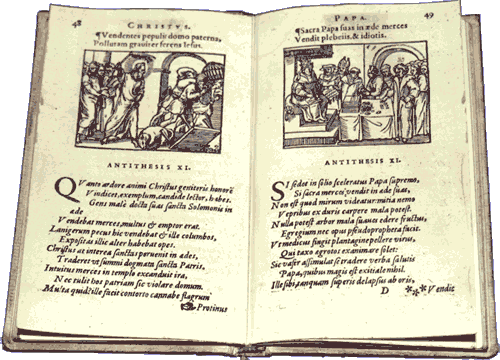 48
CHRISTVS.
Vendentes populũ domo paterna,
Pollutam graviter ferens Iesus.
ANTITHESIS XI.
Quanto ardore animi Christus genitoris honorẽ
Vindicet, exemplum, candide lector, habes.
Gens male docta suas sancta Solomonis in
ade
Vendebat merces, multus & emptor erat.
Lanigerum pecus hic vendebat & ille columbos,
Expositas illic alter habebat opes.
Christus at interea sanctas pervenit in ades,
Traderet ut summi dogmata sancta Patris.
Intuitus merces in templo excanduit ira,
Nec tulit hoc patriam sic violare domum.
Multa quidẽ ille facit contorto cannabe flagrum
Protinus
PAPA.
49
Sacra Papa suas in æde merces
Vendit plebeiis, & idiotis.
ANTITHESIS XI.
Si sedet in solio sceleratus Papa supremo,
Si sacra merces vendit in ade suas,
Non est quod mirum videatur: mitia nemo
Vepribus ex duris carpere mala potest.
Nulla potest arbor mala suaves edere fructus,
Egregium nec opus pseudopropheta facit.
Ut medicus fingit plantagine pellere virus,
Qui taxo agrotos exanimare solet:
Sic vafer assimulat se tradere verba salutis
Papa, quibus magis est exitiale nihil.
Ille sibi, tanquam superis delapsus ab oris,
D Vendit